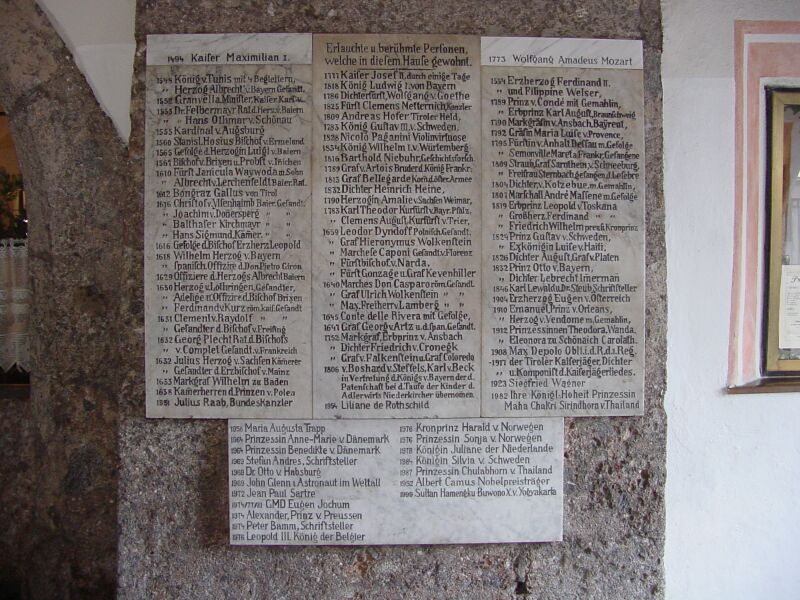 1494 Kaiser Maximilian I.
1548 König v. Tunis mit 4 Begleitern,
" Herzog Albrecht v. Bayern Gesandt.
1552 Granvella, Minister, Kaiser Karl V.
1553 Dr. Felbermayr Rat d. Herz. v. Baiern
" Hans Othmar v. Schönau
1555 Kardinal v. Augsburg
1560 Stanisl. Hosius Bischof v. Ermeland
1565 Gefolge d. Herzogin Luigi v. Baiern
1561 Bischof v. Brixen u. Probst v. Inichen
1610 Fürst Janicula Waywoda m. Sohn
" Albrecht v. Lerchenfeldt Baier. Rat.
1612 Bongraz Gallus von Tirol
1616 Christof v. Ulsenhaimb Baier. Gesandt.
" Joachim v. Donersperg " "
" Balthaser Kirchmayr " "
" Hans Sigmund, Kämer. " "
1616 Gefolge d. Bischof Erzherz. Leopold
1618 Wilhelm Herzog v. Bayern
" spanisch. Offizire d. Don Pietro Giron
1629 Offiziere d. Herzogs Albrecht Baiern
1630 Herzog v. Lothringen, Gesandter,
" Adelige u. Offizire d. Bischof Brixen
" Ferdinand v. Kurz röm. kais. Gesandt
1631 Clement v. Raydolf " "
" Gesandter d. Bischof v. Freising
1632 Georg Plecht Rat d. Bischofs
" v. Complet Gesandt. v. Frankreich
1632 Julius Herzog v. Sachsen Kämerer
" Gesandter d. Erzbischof v. Mainz
1653 Markgraf Wilhelm zu Baden
1658 Kamerherren d. Prinzen v. Polen
1951 Julius Raab, Bundeskanzler
Erlauchte u berühmte Personen,
welche in diesem Hause gewohnt.
1777 Kaiser Josef II. durch einige Tage
1818 König Ludwig I. von Bayern
1786 Dichterfürst, Wolfgang v. Goethe
1825 Fürst Clemens Metternich, Kanzler
1809 Andreas Hofer Tiroler Held,
1783 König Gustav III. v. Schweden.
1828 Nicolo Paganini Violinvirtuose
1834 König Wilhelm I. v. Würtemberg
1816 Barthold Niebuhr, Geschichtsforsch
1789 Graf v. Artois Bruder d. König Frankr.
1813 Graf Bellegarde Kom. d. öster. Armee
1832 Dichter Heinrich Heine,
1790 Herzogin Amalie v. Sachsen Weimar,
1783 Karl Theodor Kurfürst v. Bayr. Pfalz,
" Clemens August, Kurfürst v. Trier,
1659 Leodor Dyndoff Polnisch. Gesandt.
" Graf Hieronymus Wolkenstein
" Marchese Caponi Gesandt v. Florenz
" Fürstbischof v. Narda.
" Fürst Gonzage u. Graf Kevenhiller
1640 Marches Don Casparo röm. Gesandt.
" Graf Ulrich Wolkenstein " "
" Max. Freiherr v. Lamberg " "
1645 Conte delle Rivera mit Gefolge,
1641 Graf Georg v. Artz u. d. span. Gesandt.
1752 Markgraf, Erbprinz v. Ansbach
" Dichter Friedrich v. Cronegk
" Graf v. Falkenstein u. Graf Coloredo
1806 v. Boshard v. Steffels, Karl v. Beck
in Vertretung d. Königs v. Bayern der d.
Patenschaft bei d. Taufe der Kinder d.
Adlerwirts Niederkircher übernomen.
1954 Liliane de Rothschild
1773 Wolfgang Amadeus Mozart
1554 Erzherzog Ferdinand II.
" und Filippine Welser,
1789 Prinz v. Condé mit Gemahlin,
" Erbprinz Karl August, Braunschweig
1790 Markgräfin v. Ansbach, Bayreut,
1792 Gräfin Maria Luise v. Provence,
1795 Fürstin v. Anhalt Dessau m. Gefolge
" Semonville Maret a. Frankr. Gefangene
1809 Straub, Graf Sarnthein v. Schneeburg,
" Freifrau Sternbach gefangen, d. Hofebre
1804 Dichter, v. Kotzebue m. Gemahlin,
1801 Marschall André Massene m. Gefolge
1819 Erbprinz Leopold v. Toskana
" Großherz Ferdinand " "
" Friedrich Wilhelm preuß. Kronprinz
1824 Prinz Gustav v. Schweden,
" Exkönigin Luise v. Haiti,
1826 Dichter August, Graf v. Platen
1832 Prinz Otto v. Bayern,
" Dichter Lebrecht Imerman
1846 Karl Lewald u. Dr. Steub, Schriftsteller
1904 Erzherzog Eugen v. Österreich
1910 Emanuel, Prinz v. Orleans,
" Herzog v. Vendome m. Gemahlin,
1912 Prinzessinnen Theodora, Wanda,
" Eleonora zu Schönaich Carolath.
1908 Max Depolo Obl. i. d. R. d. 1. Reg.
-1917 der Tiroler Kaiserjäger, Dichter
" u. Komponist d. Kaiserjägerliedes.
1923 Siegfried Wagner
1982 Ihre Königl. Hoheit Prinzessin
Maha Chakri Sirindhorn v. Thailand
1956 Maria Augusta Trapp
1964 Prinzessin Anne-Marie v. Dänemark
1964 Prinzessin Benedikte v. Dänemark
1969 Stefan Andres, Schriftsteller
1969 Dr. Otto v. Habsburg
1969 John Glenn 1. Astronaut im Weltall
1972 Jean Paul Sartre
1974/77/81 GMD Eugen Jochum
1974 Alexander, Prinz v. Preussen
1974 Peter Bamm, Schriftsteller
1976 Leopold III. König der Belgier
1976 Kronprinz Harald v. Norwegen
1976 Prinzessin Sonja v. Norwegen
1978 Königin Juliane der Niederlande
1984 Königin Silvia v. Schweden
1987 Prinzessin Chulabhorn v. Thailand
1952 Albert Camus Nobelpreisträger
1999 Sultan Hamengku Buwono X. v. Yogyakarta